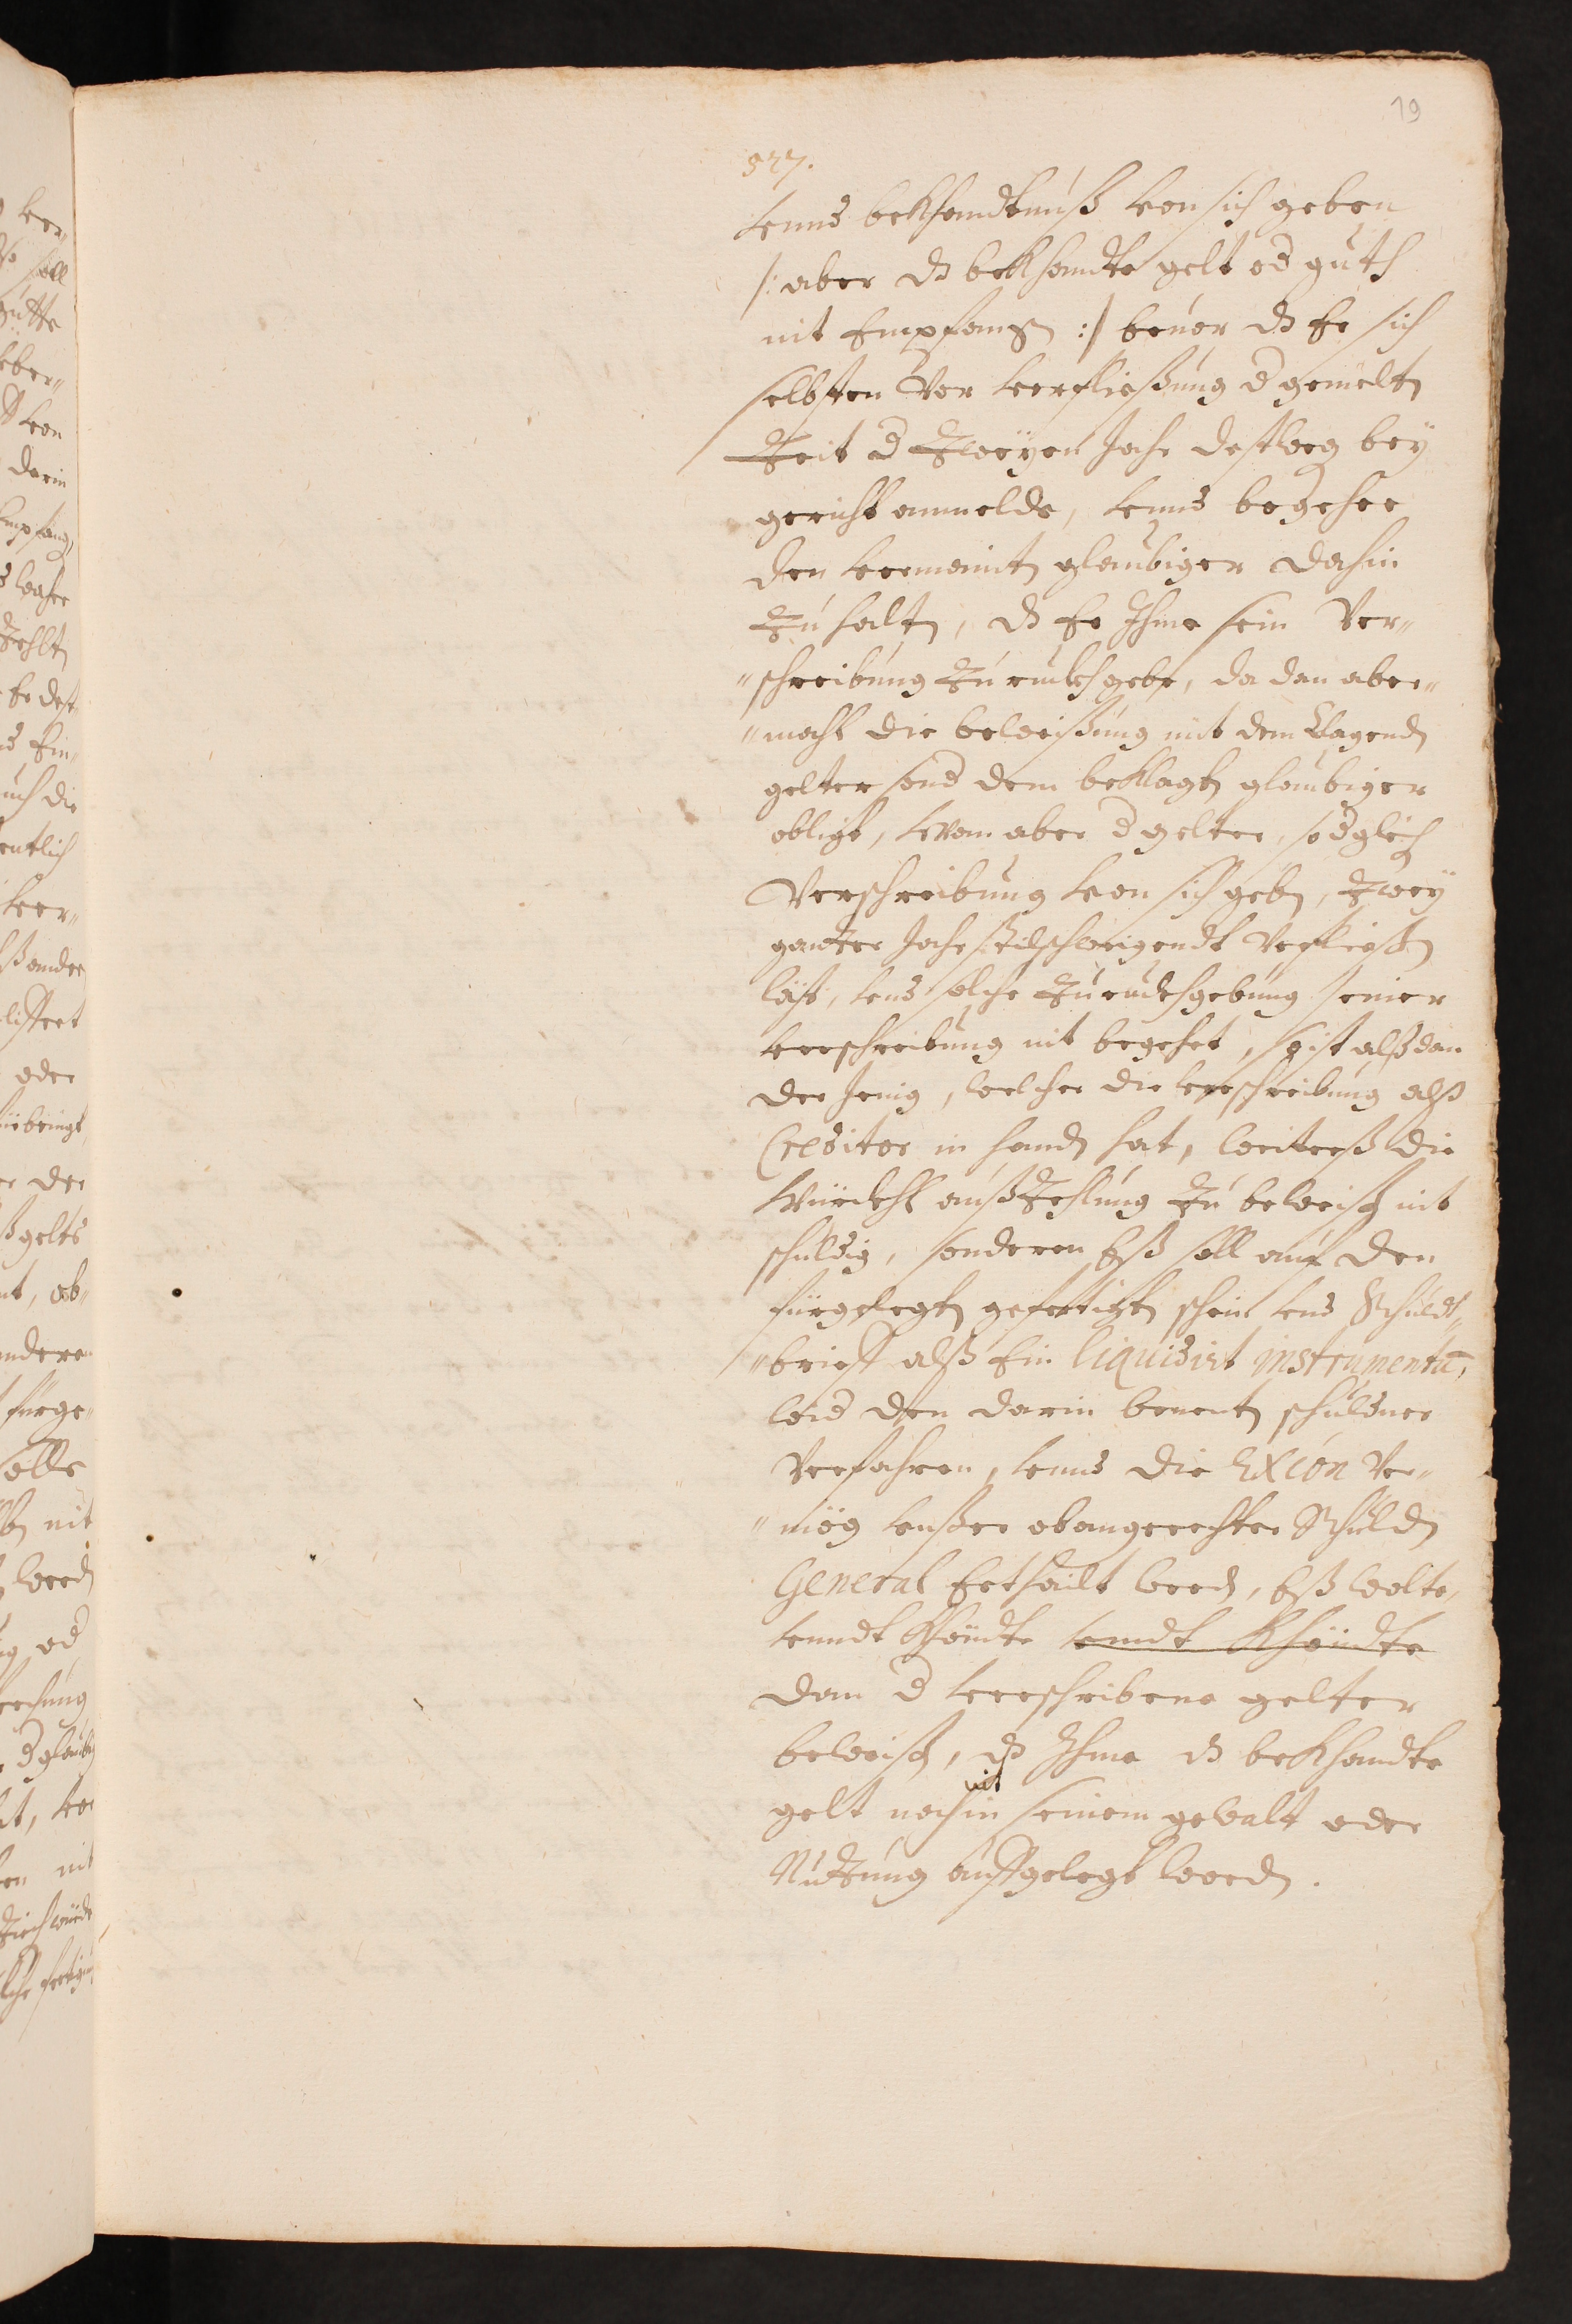 19
527.
unnd bekhandtnuß von sich geben
/: aber dz bekhandte gelt od guth
nit Empfangen :/ beuor dz Er sich
selbsten Vor verfließung d gemelten
Zeit d Zweÿen Jahr destweg beÿ
gericht anmelde, unnd begehre
den vermaint glaubiger dahin
Zu halten, dz Er Ihme sein Ver„
„schreibung Zuruckhgebe, da dan aber„
„mahl die beweißung nit dem Clagenden
gelter sond dem beklagten glaubiger
obligt, wan aber d gelter, so dgleich
Verschreibung von sich geben, Zweÿ
gantzer Jahr stilschweigendt Verfließen
läst, und solche Zuruckhgebung seiner
verschreibung nit begehrt, so ist alßdan
der Jenig, welcher die verschreibung alß
Creditor in handen hat, weiterß die
würckhl außzehlung Zu beweisen nit
schuldig, sonderen Eß soll auf den
fürgelegten gefertigten schein und Schuldt„
„brieff alß Ein liquidirt instrumentu,
wid den darin benenten schuldner
Verfahren, unnd die Excon Ver„
„mög unßer obangerechter Schulden
General Erthailt werden, Eß wolte,
unndt khöndte undt khöndte
dan d verschribene gelter
beweisen, dz Ihme dz bekhandte
nit
gelt noch in seinem gewalt oder
Nutzung außgelegt worden.